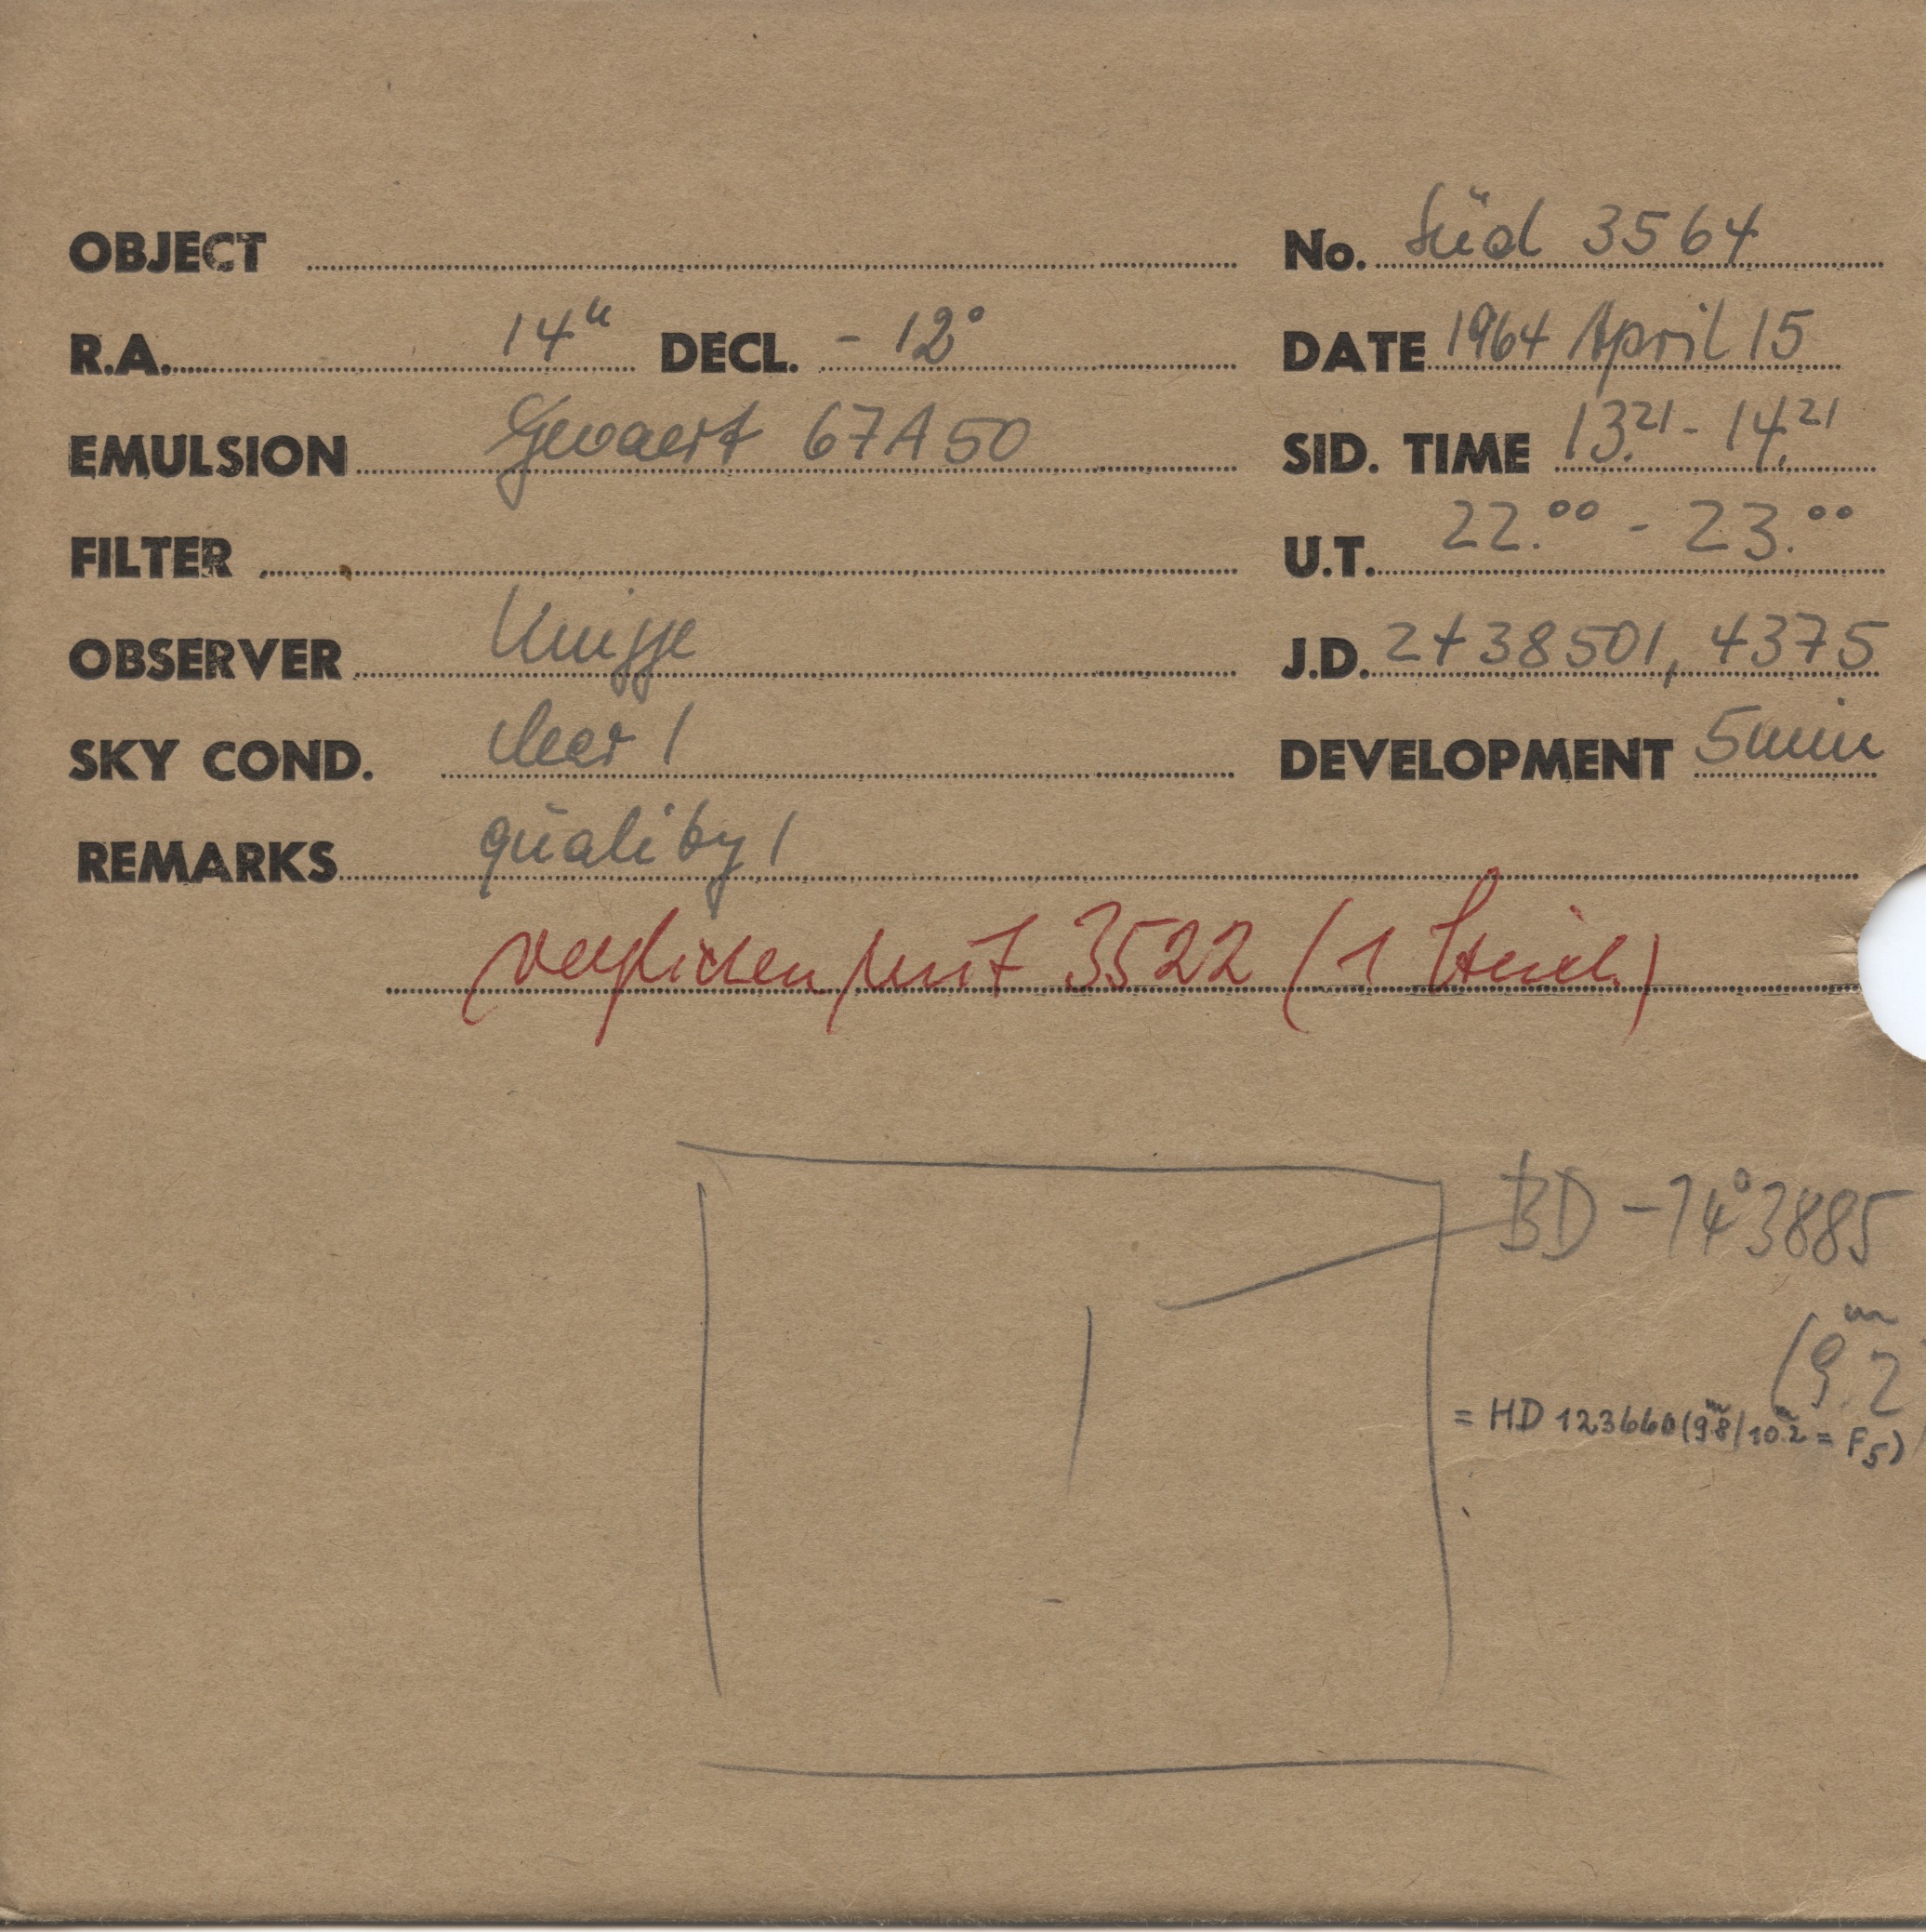 OBJECT No. Süd 3564
R.A. 14ʰ DECL. - 12° DATE 1964 April 15
EMULSION Gevaert 67A50 SID. TIME 13.²¹ - 14.²¹
FILTER U.T. 22.⁰⁰ - 23.⁰⁰
OBSERVER Knigge J.D. 2438501,4375
SKY COND. clear 1 DEVELOPMENT 5min
REMARKS quality 1
verglichen mit 3522 (1 Strich.)
BD -14°3885
(9ᵐ.2
= HD 123660 (9ᵐ.8/10ᵐ.2 = F5)